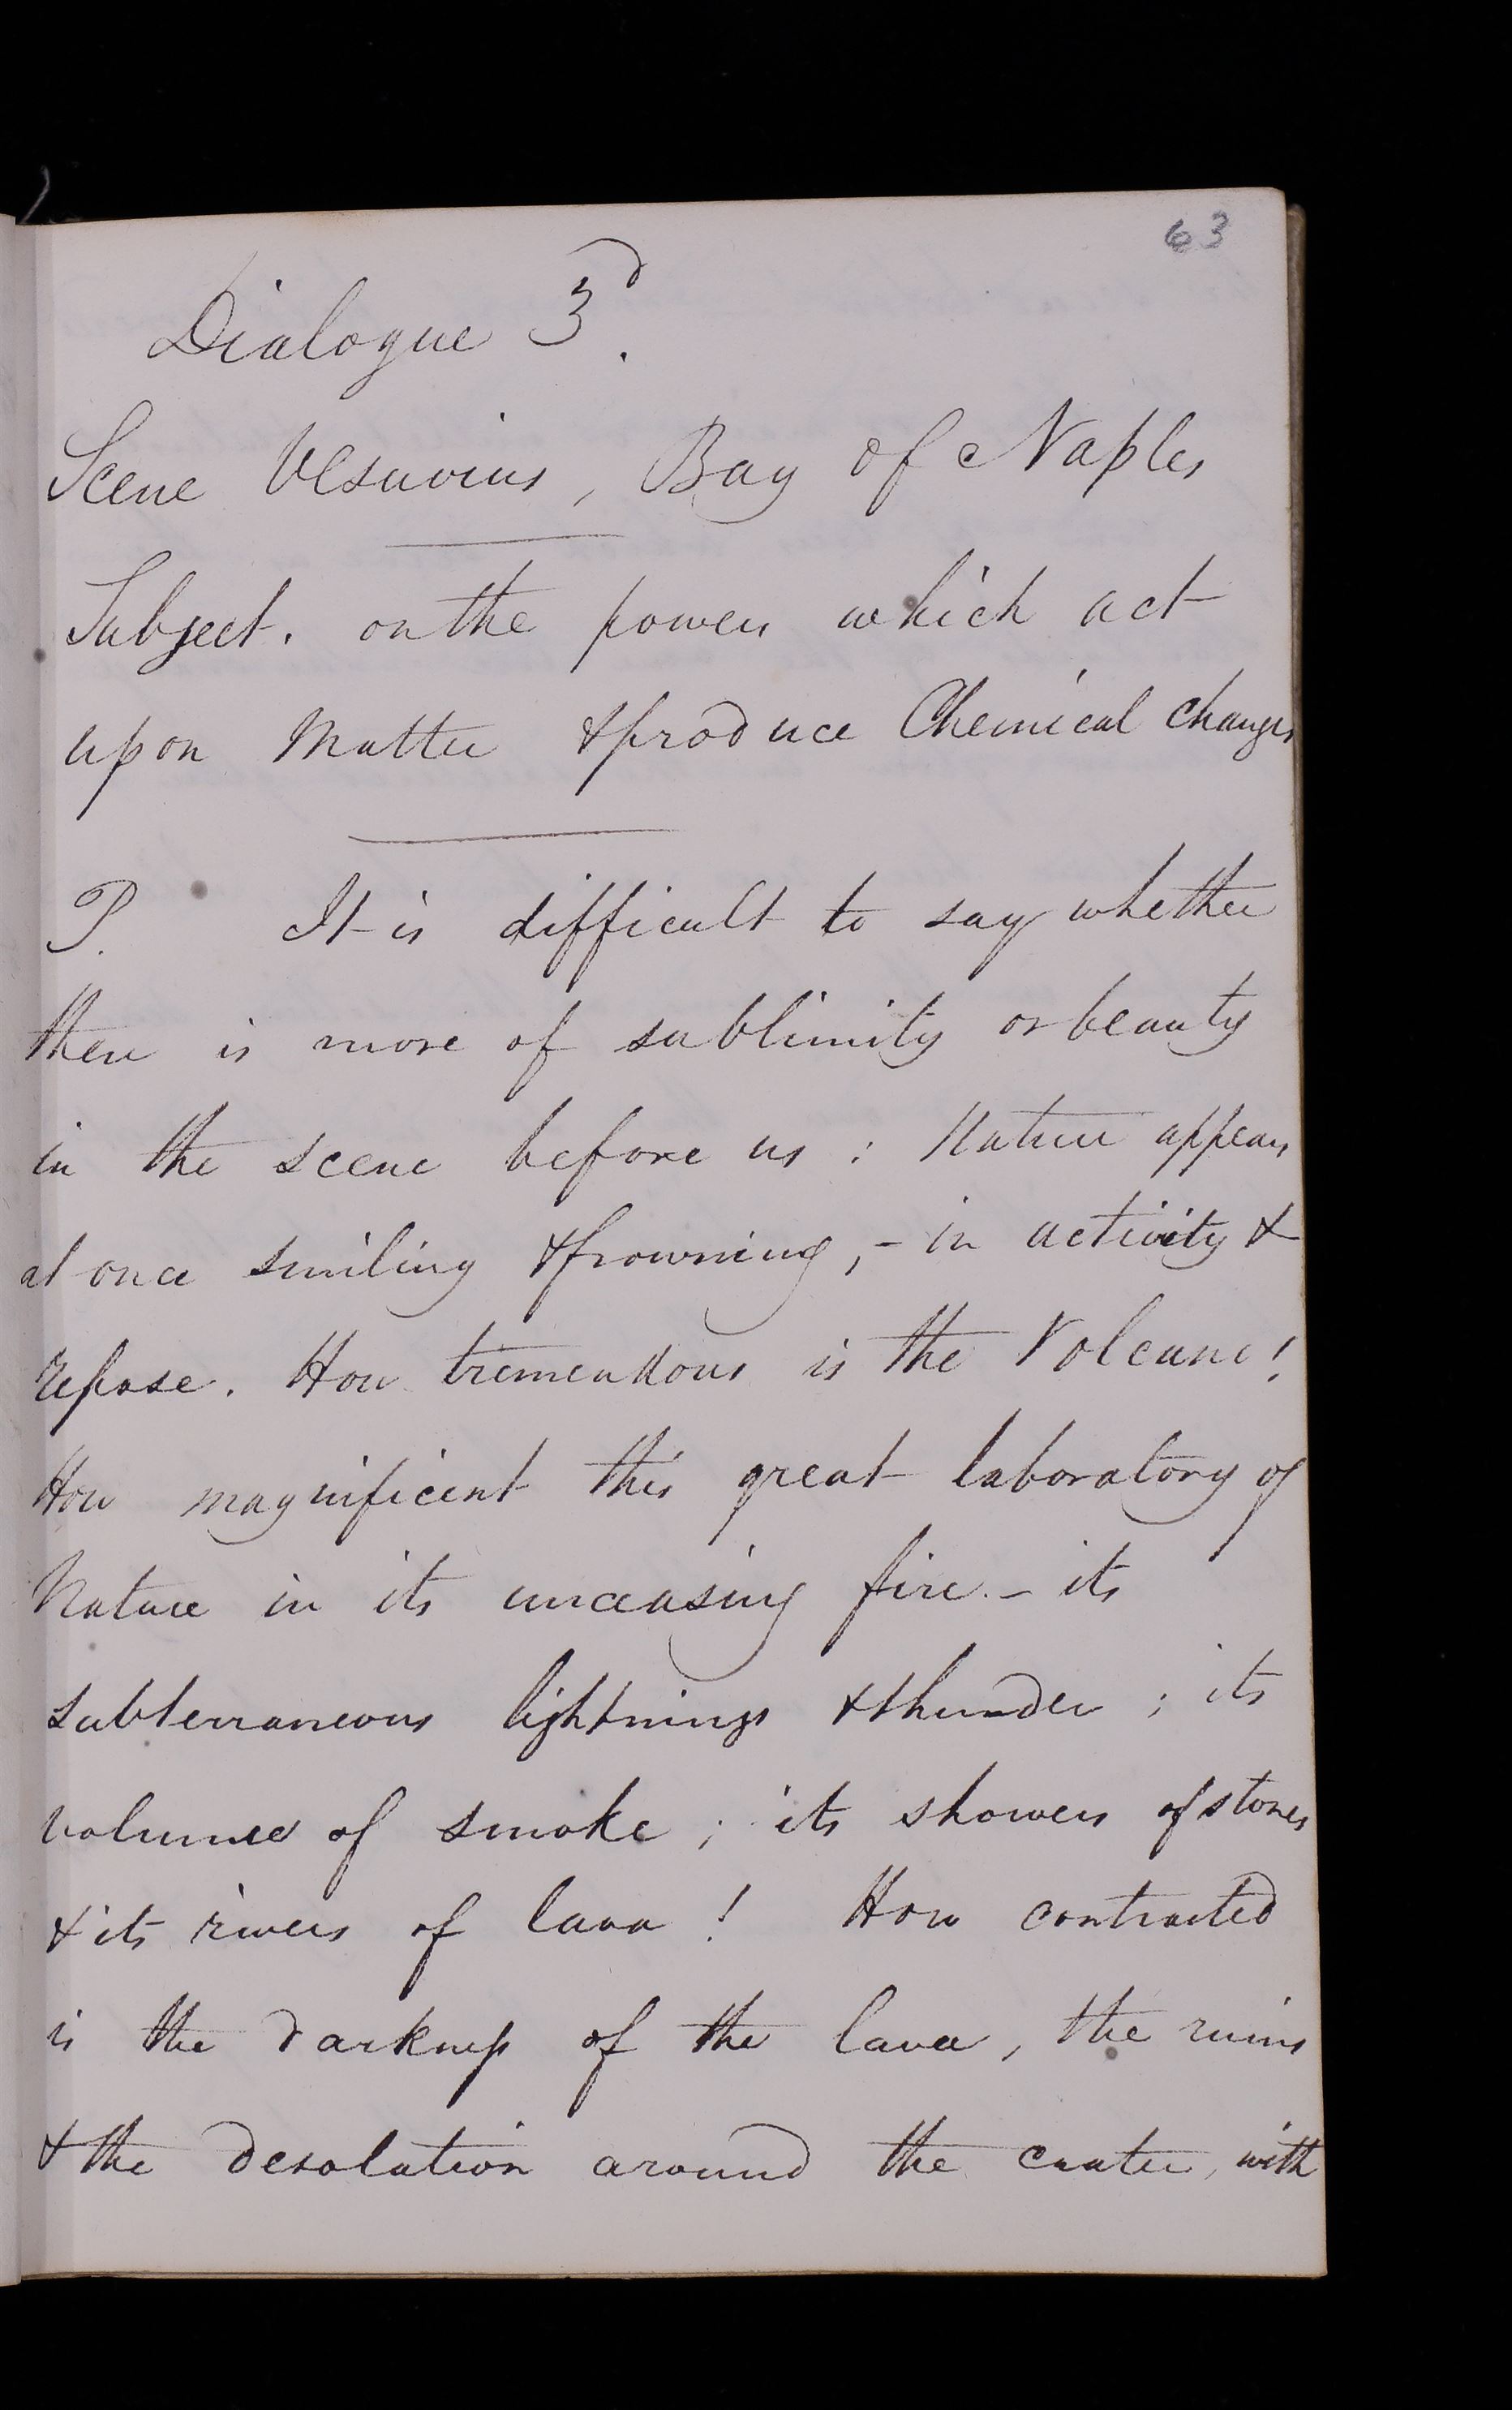 63
Dialogue 3d.
Scene Vesuvius, Bay of Naples
Subject. on the powers which act
upon Matter & produce Chemical changes
P. It is difficult to say whether
there is more of sublimity or beauty
in the scene before us : Nature appears
at once smiling & frowning, - in activity &
repose. How tremendous is the Volcano!
How magnificent this great laboratory of
Nature in its unceasing fire. - its
subterraneous lightnings & thunder ; its
volumes of smoke ; its showers of stones
& its rivers of lava ! How contrasted
is the darkness of the lava, the ruins
& the desolation around the crater, with